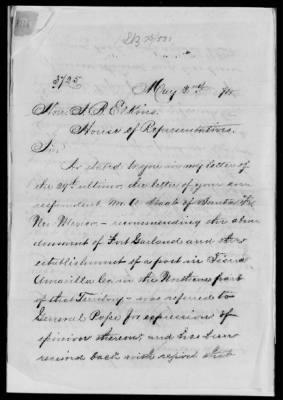 3725
May 2nd
Hon. S. B. Elkins
House of Representatives.
Sir,
As stated to you in my letter
of the 29th ultimo, the letter of your cor-
respondent Mr. A. Staab of Santa Fé
New Mexico - recommending the aban-
donment of Fort Garland and the
establishment of a post in Tierra
Amarilla Co. in the Northern part
of that Territory - was referred to
General Pope for expression of
opinion thereon, and has been
received back with report that